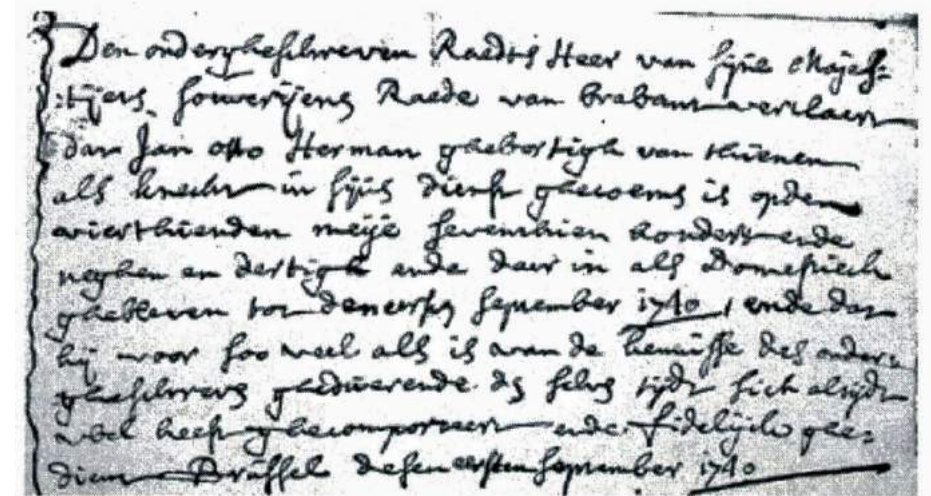 Den ondergheschreven Raedts Heer van sijne Majes=
:tijts souverijens Raede van brabant verclaert
dat Jan otto Herman ghebortigh van thienen
als knecht in sijns dienst ghecoems is opden
vierthienden meije seventhien hondert ende
neghen en dertigh ende daer in als Domestieck
ghebleven tot den eersten september 1740, ende dat
hij voor soo veel als is van de kenisse des onder=
gheschrevs gheduerende des selvs tijdt sich altijdt
wel heeft ghecomporteert ende fidelijck ghe=
dient Brussel desen eersten september 1740